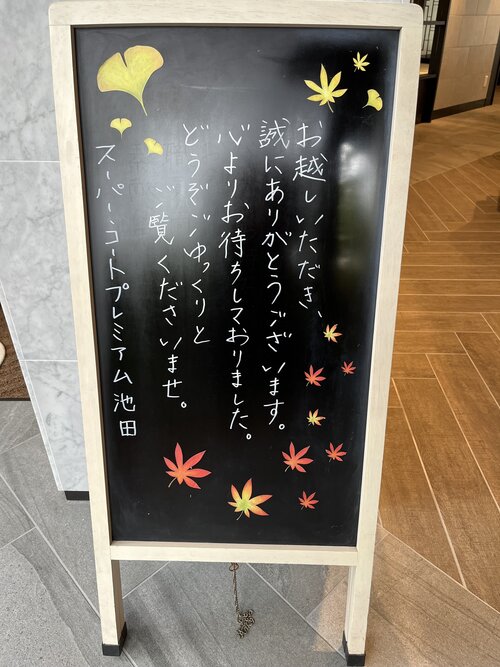 お越しいただき、
誠にありがとうございます。
心よりお待ちしておりました。
どうぞごゆっくりと
ご覧くださいませ。
スーパー・コートプレミアム池田